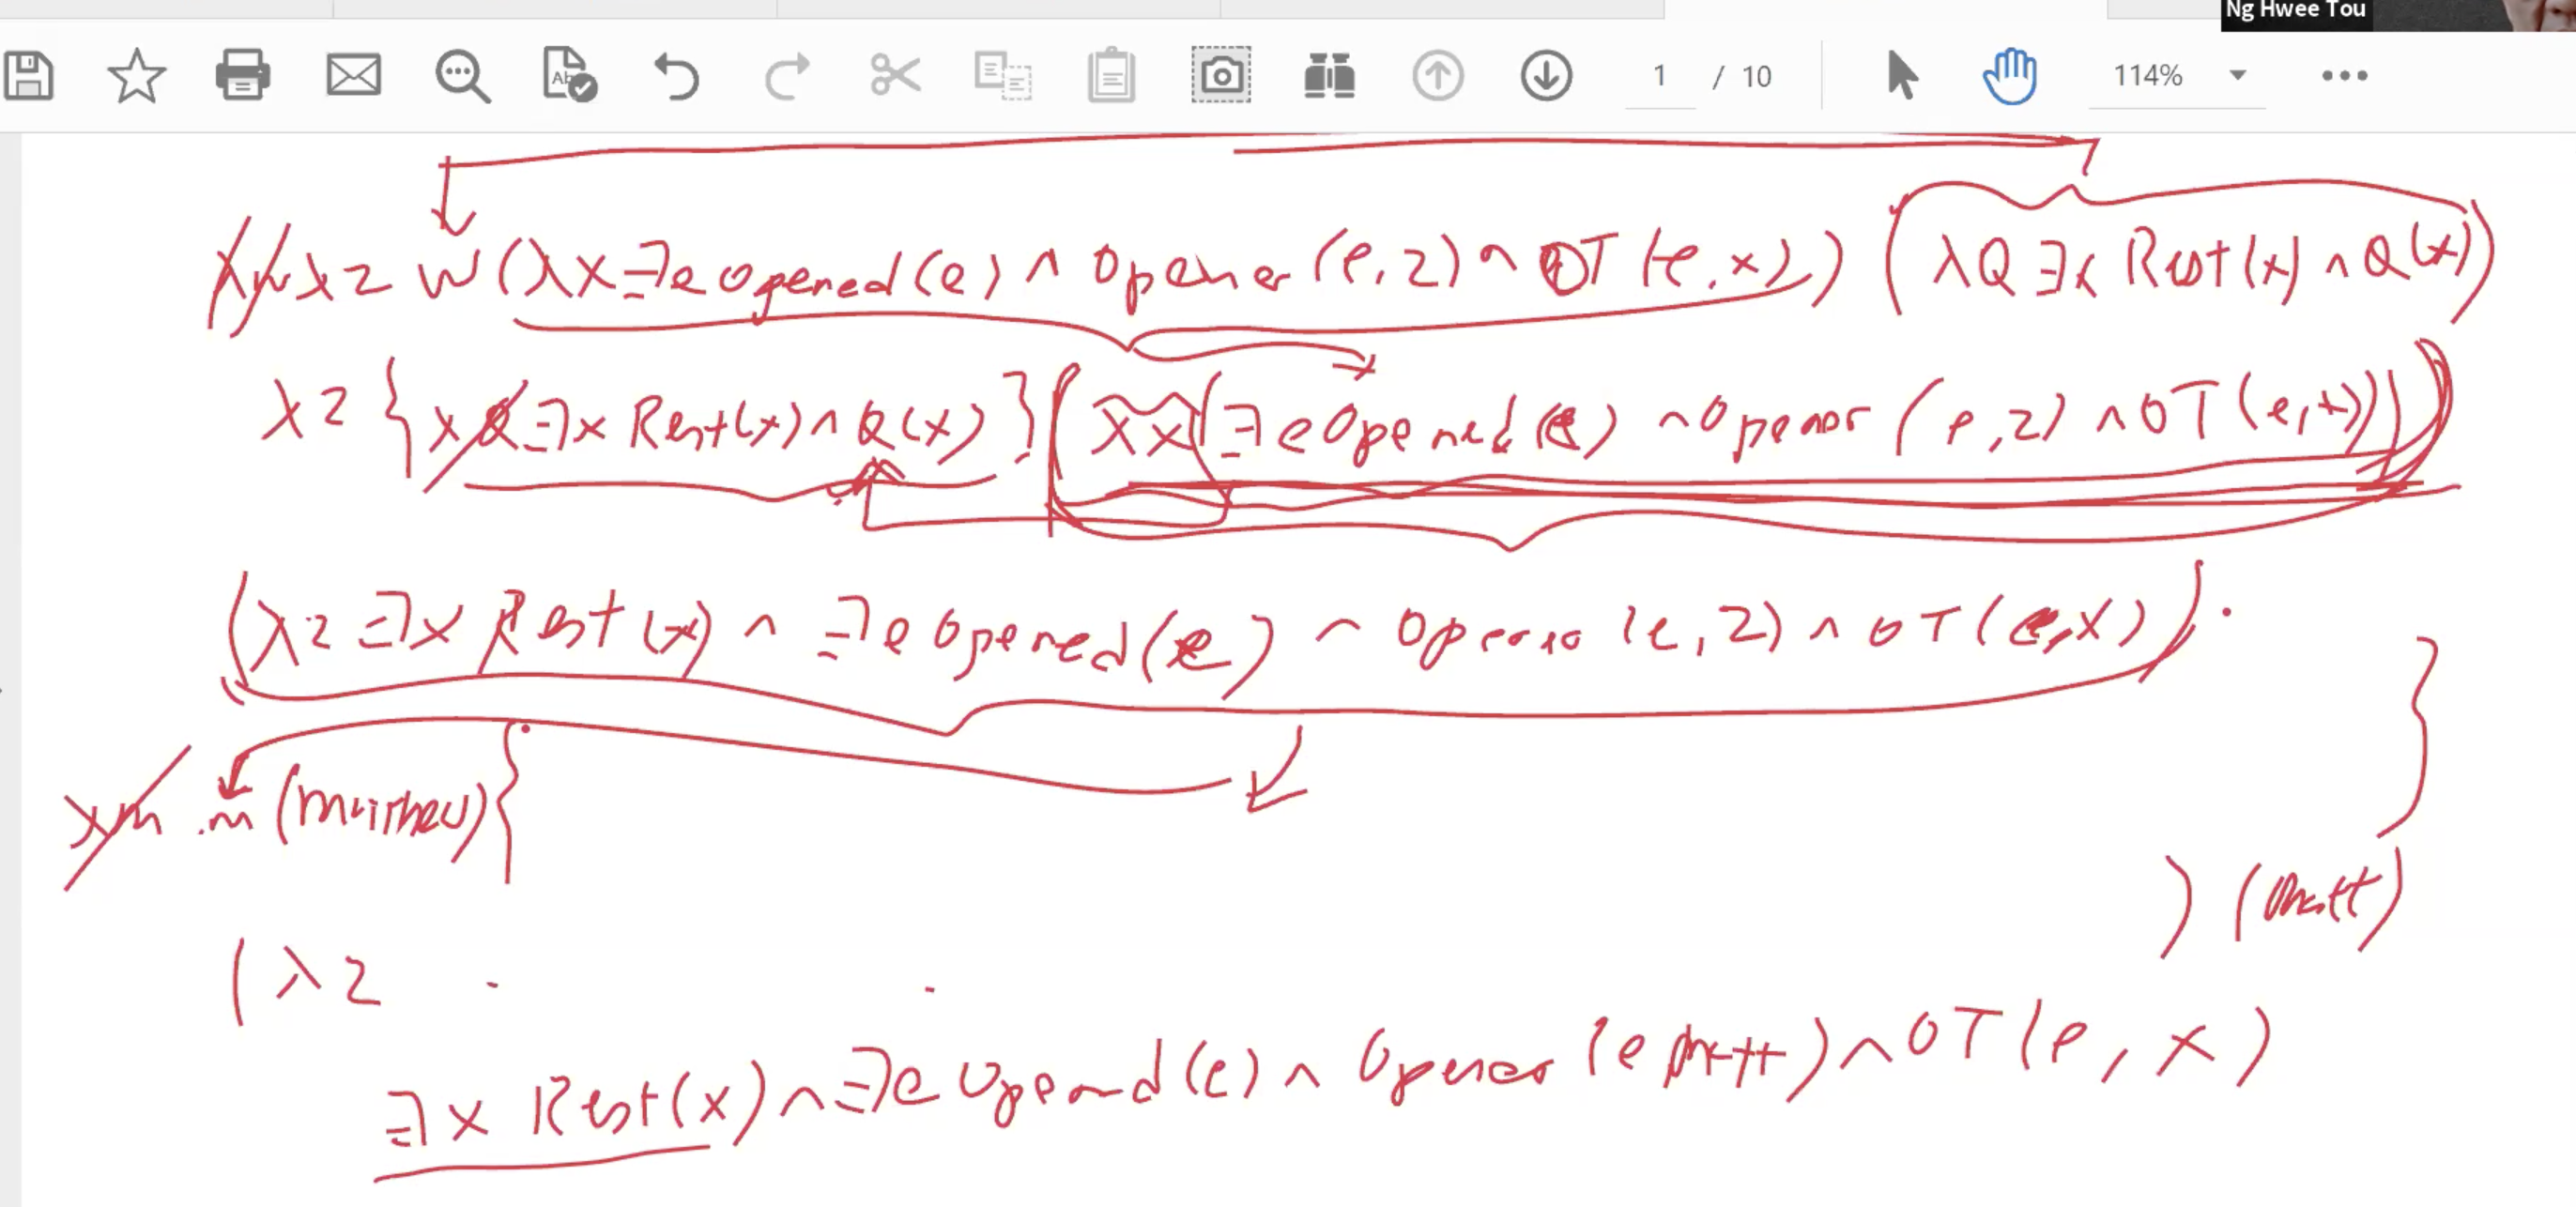 Ng Hwee Tou
1 / 10 114%
λw λz w (λx ∃e opened(e) ∧ Opener (e, z) ∧ OT (e, x)) (λQ ∃x Rest(x) ∧ Q(x))
λz { λQ ∃x Rest(x) ∧ Q(x) } (λx (∃e Opened(e) ∧ Opener (e, z) ∧ OT (e, x)))
(λz ∃x Rest(x) ∧ ∃e Opened(e) ∧ Opener (e, z) ∧ OT (e, x)).
λm .m (Matthew) {
}
(λz ) (Matt)
∃x Rest(x) ∧ ∃e Opened(e) ∧ Opener (e, Matt) ∧ OT (e, x)